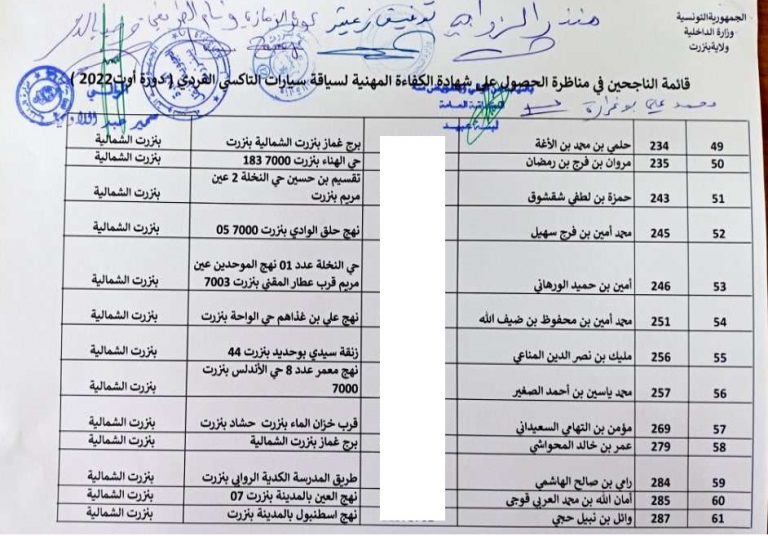 الجمهورية التونسية
وزارة الداخلية
ولاية بنزرت
قائمة الناجحين في مناظرة الحصول على شهادة الكفاءة المهنية لسياقة سيارات التاكسي الفردي ( دورة أوت2022 )
49 234 حلمي بن محمد بن الأغة برج غماز بنزرت الشمالية بنزرت بنزرت الشمالية
50 235 مروان بن فرج بن رمضان حي الهناء بنزرت 7000 183 بنزرت الشمالية
51 243 حمزة بن لطفي شقشوق تقسيم بن حسين حي النخلة 2 عين مريم بنزرت بنزرت الشمالية
52 245 محمد أمين بن فرج سهيل نهج حلق الوادي بنزرت 7000 05 بنزرت الشمالية
53 246 أمين بن حميد الورهاني حي النخلة عدد 01 نهج الموحدين عين مريم قرب عطار المقني بنزرت 7003 بنزرت الشمالية
54 251 محمد أمين بن محفوظ بن ضيف الله نهج علي بن غذاهم حي الواحة بنزرت بنزرت الشمالية
55 256 مليك بن نصر الدين المناعي زنقة سيدي بوحديد بنزرت 44 بنزرت الشمالية
56 257 محمد ياسين بن أحمد الصغير نهج معمر عدد 8 حي الأندلس بنزرت 7000 بنزرت الشمالية
57 269 مؤمن بن التهامي السعيداني قرب خزان الماء بنزرت حشاد بنزرت بنزرت الشمالية
58 279 عمر بن خالد المحواشي برج غماز بنزرت الشمالية بنزرت الشمالية
59 284 رامي بن صالح الهاشمي طريق المدرسة الكدية الروابي بنزرت بنزرت الشمالية
60 285 أمان الله بن محمد العربي قوجي نهج العين بالمدينة بنزرت 07 بنزرت الشمالية
61 287 وائل بن نبيل حجي نهج اسطنبول بالمدينة بنزرت بنزرت الشمالية